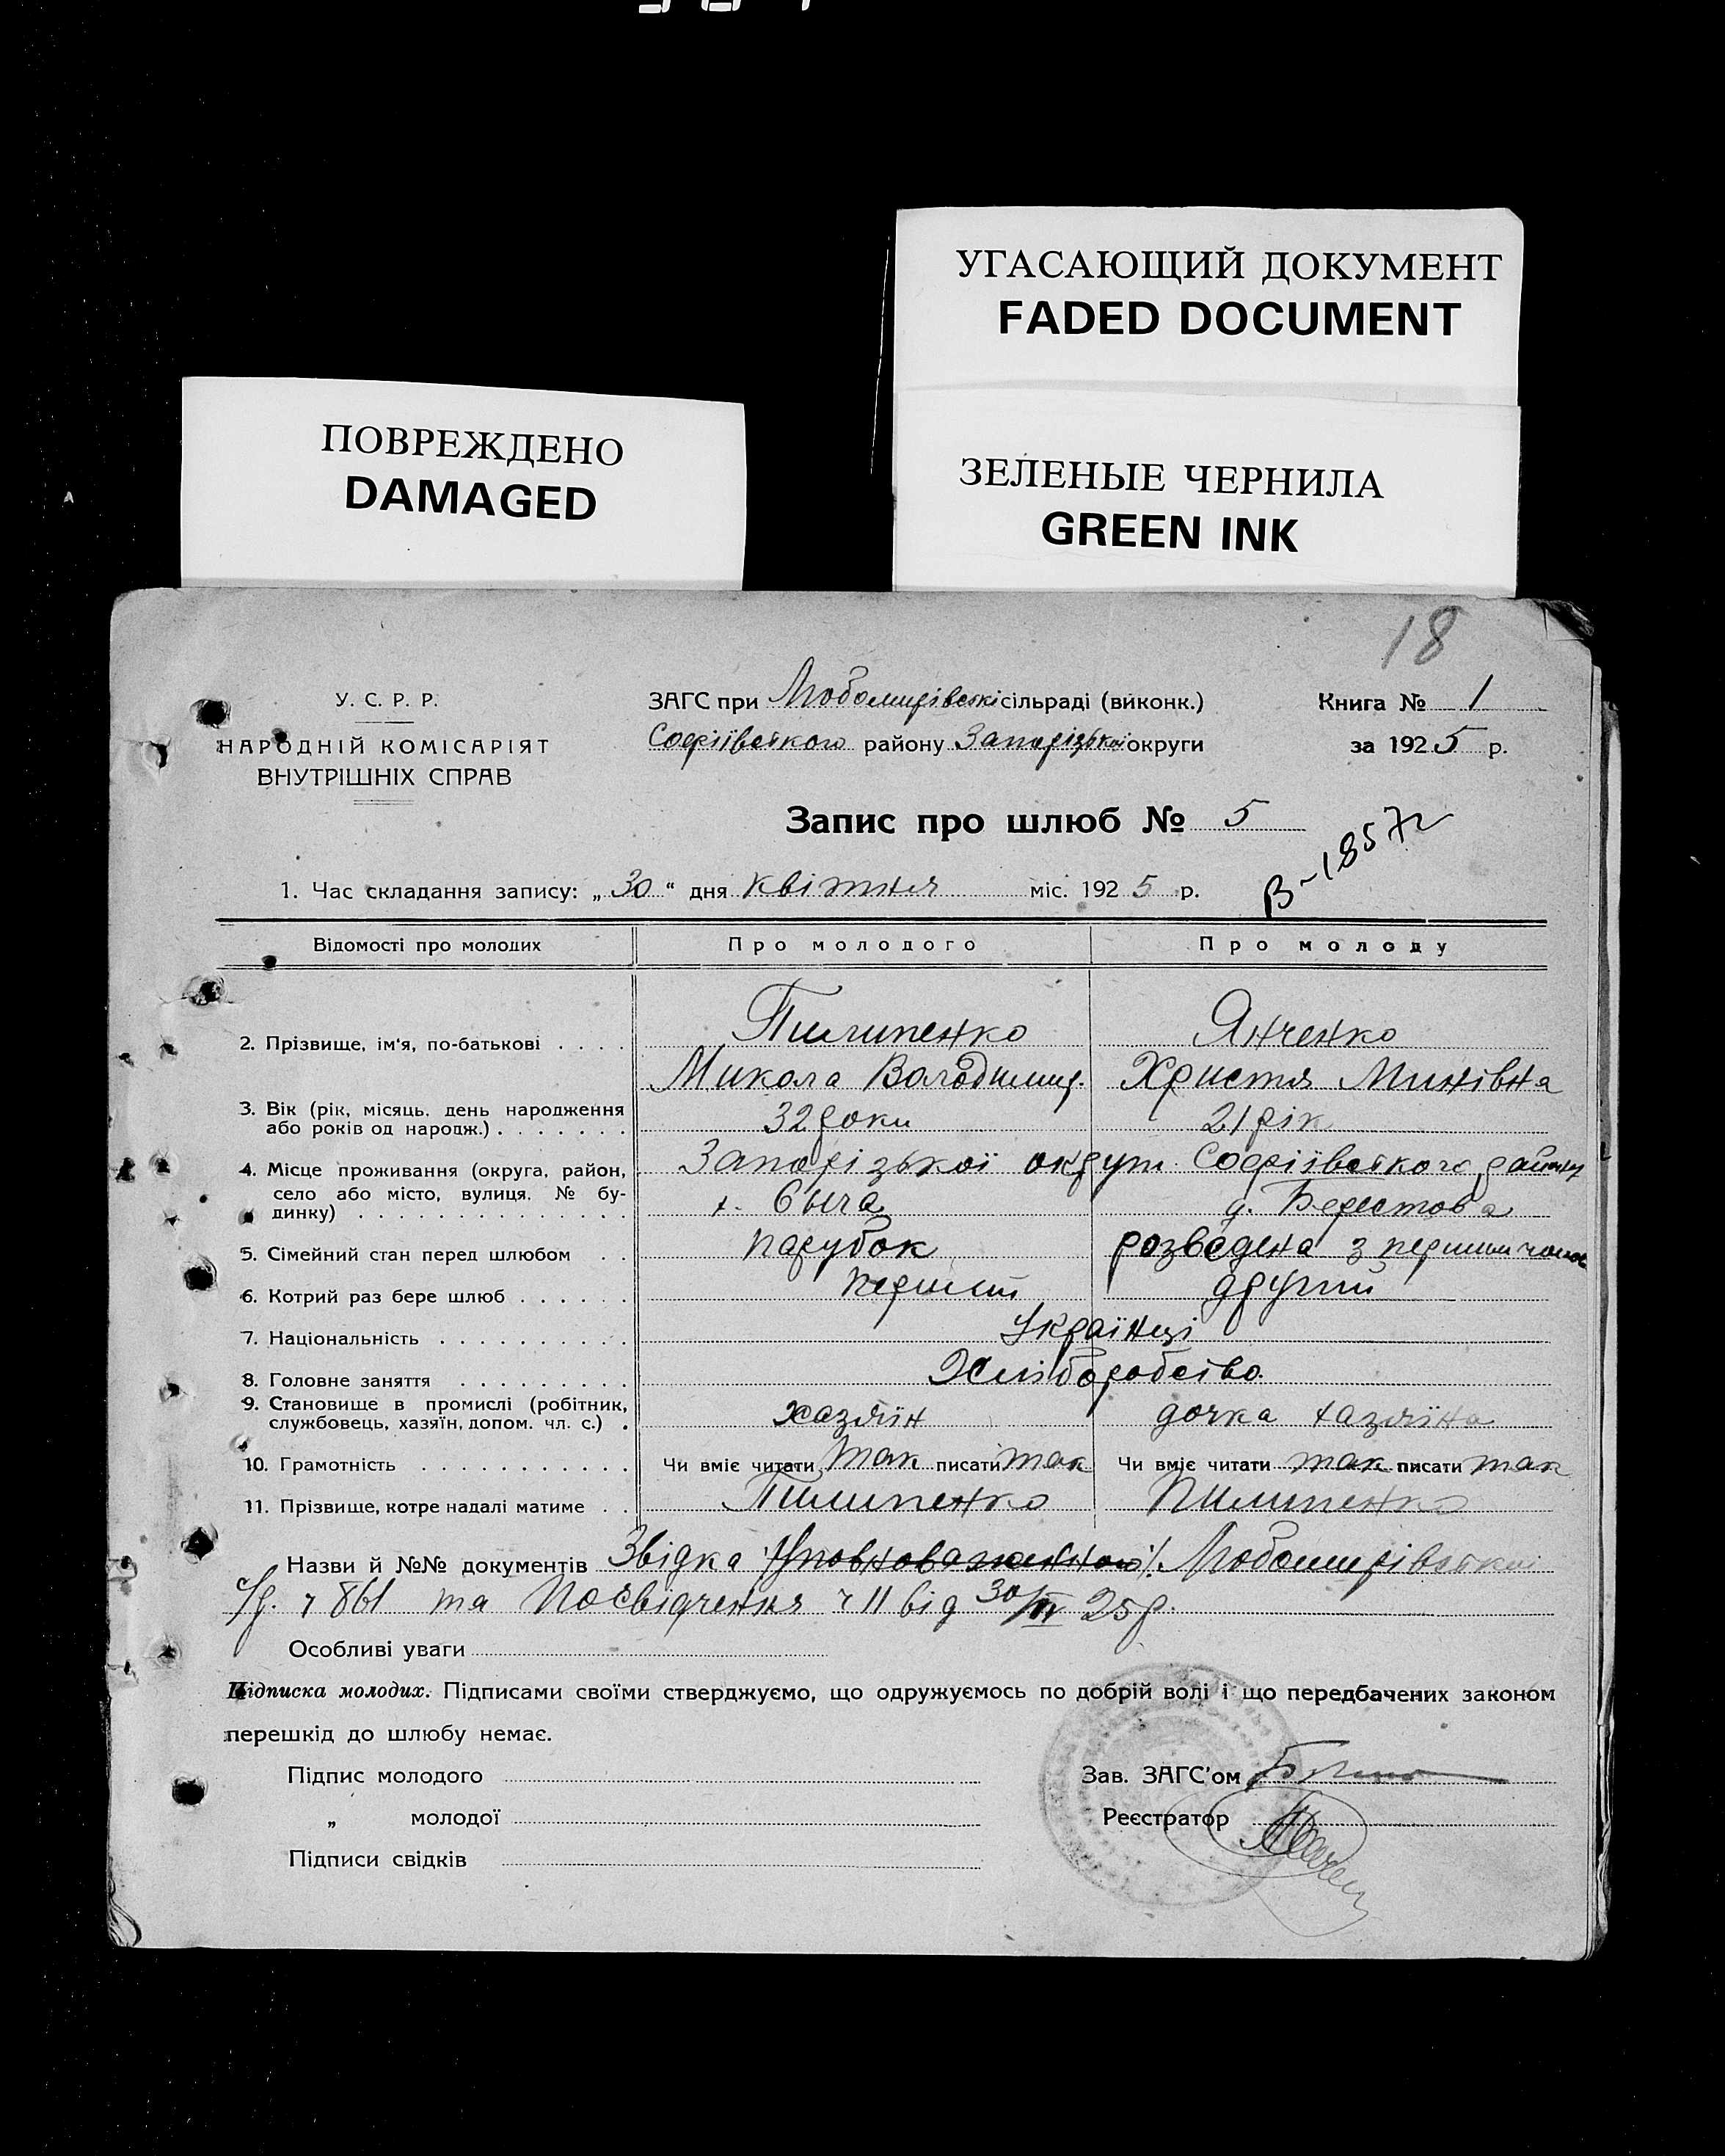 УГАСАЮЩИЙ ДОКУМЕНТ
FADED DOCUMENT
ПОВРЕЖДЕНО
DAMAGED
ЗЕЛЕНЫЕ ЧЕРНИЛА
GREEN INK
18
У. С. Р. Р.
НАРОДНІЙ КОМІСАРІЯТ
ВНУТРІШНІХ СПРАВ
ЗАГС при Любомирівській сільраді (виконк.)
Софіївського району Запорізької округи
Книга № 1
за 1925 р.
Запис про шлюб № 5
В-1857г
1. Час складання запису: „30“ дня квітня міс. 1925 р.
Відомості про молодих Про молодого Про молоду
2. Прізвище, ім'я, по-батькові . . . . Пилипенко Янченко
Микола Володимир. Христя Минівна
3. Вік (рік, місяць. день народження
або років од народж.) . . . . . . . 32 роки 21 рік
4. Місце проживання (округа, район, Запорізької округи Софіївського району
село або місто, вулиця. № бу-
динку) . . . . . . . . . . . . . . х. д. Берестова
5. Сімейний стан перед шлюбом . . парубок розведена з першим
6. Котрий раз бере шлюб . . . . . . перший другий
7. Національність . . . . . . . . . . Українці
8. Головне заняття . . . . . . . . . Хліборобство
9. Становище в промислі (робітник,
службовець, хазяїн, допом. чл. с.) . хазяїн дочка хазяїна
10. Грамотність . . . . . . . . . . . Чи вміє читати так писати так Чи вміє читати так писати так
11. Прізвище, котре надалі матиме . . Пилипенко Пилипенко
Назви й №№ документів Звідка Уповноваженного Любомирівської
с/р. ч 861 та Посвідчення ч 11 від 30/IV 25р.
Особливі уваги
Підписка молодих. Підписами своїми стверджуємо, що одружуємось по добрій волі і що передбачених законом
перешкід до шлюбу немає.
Підпис молодого
„ молодої
Підписи свідків
Зав. ЗАГС'ом
Реєстратор